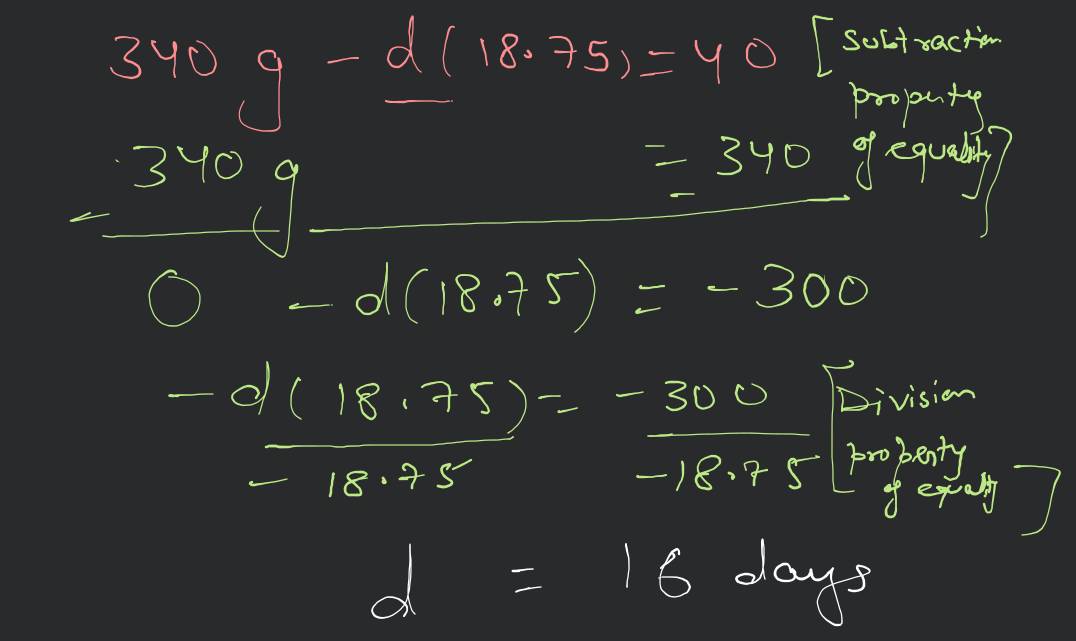 340 g - d(18.75) = 40 [Subtraction
property
-340 g = -340 of equality]
0 - d(18.75) = -300
-d(18.75) = -300 [Division
-18.75 -18.75 property
of equality]
d = 16 days